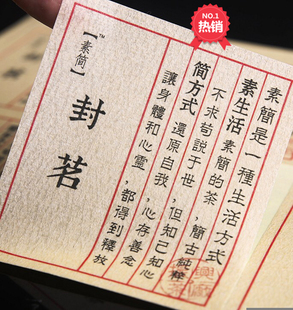 NO.1
热销
素簡是一種生活方式
素生活 素簡的茶，簡古純粹
不求苟說于世，但知己知心
简方式 還原自我，心存善念
讓身體和心靈，都得到釋放
【素简】™
封茗